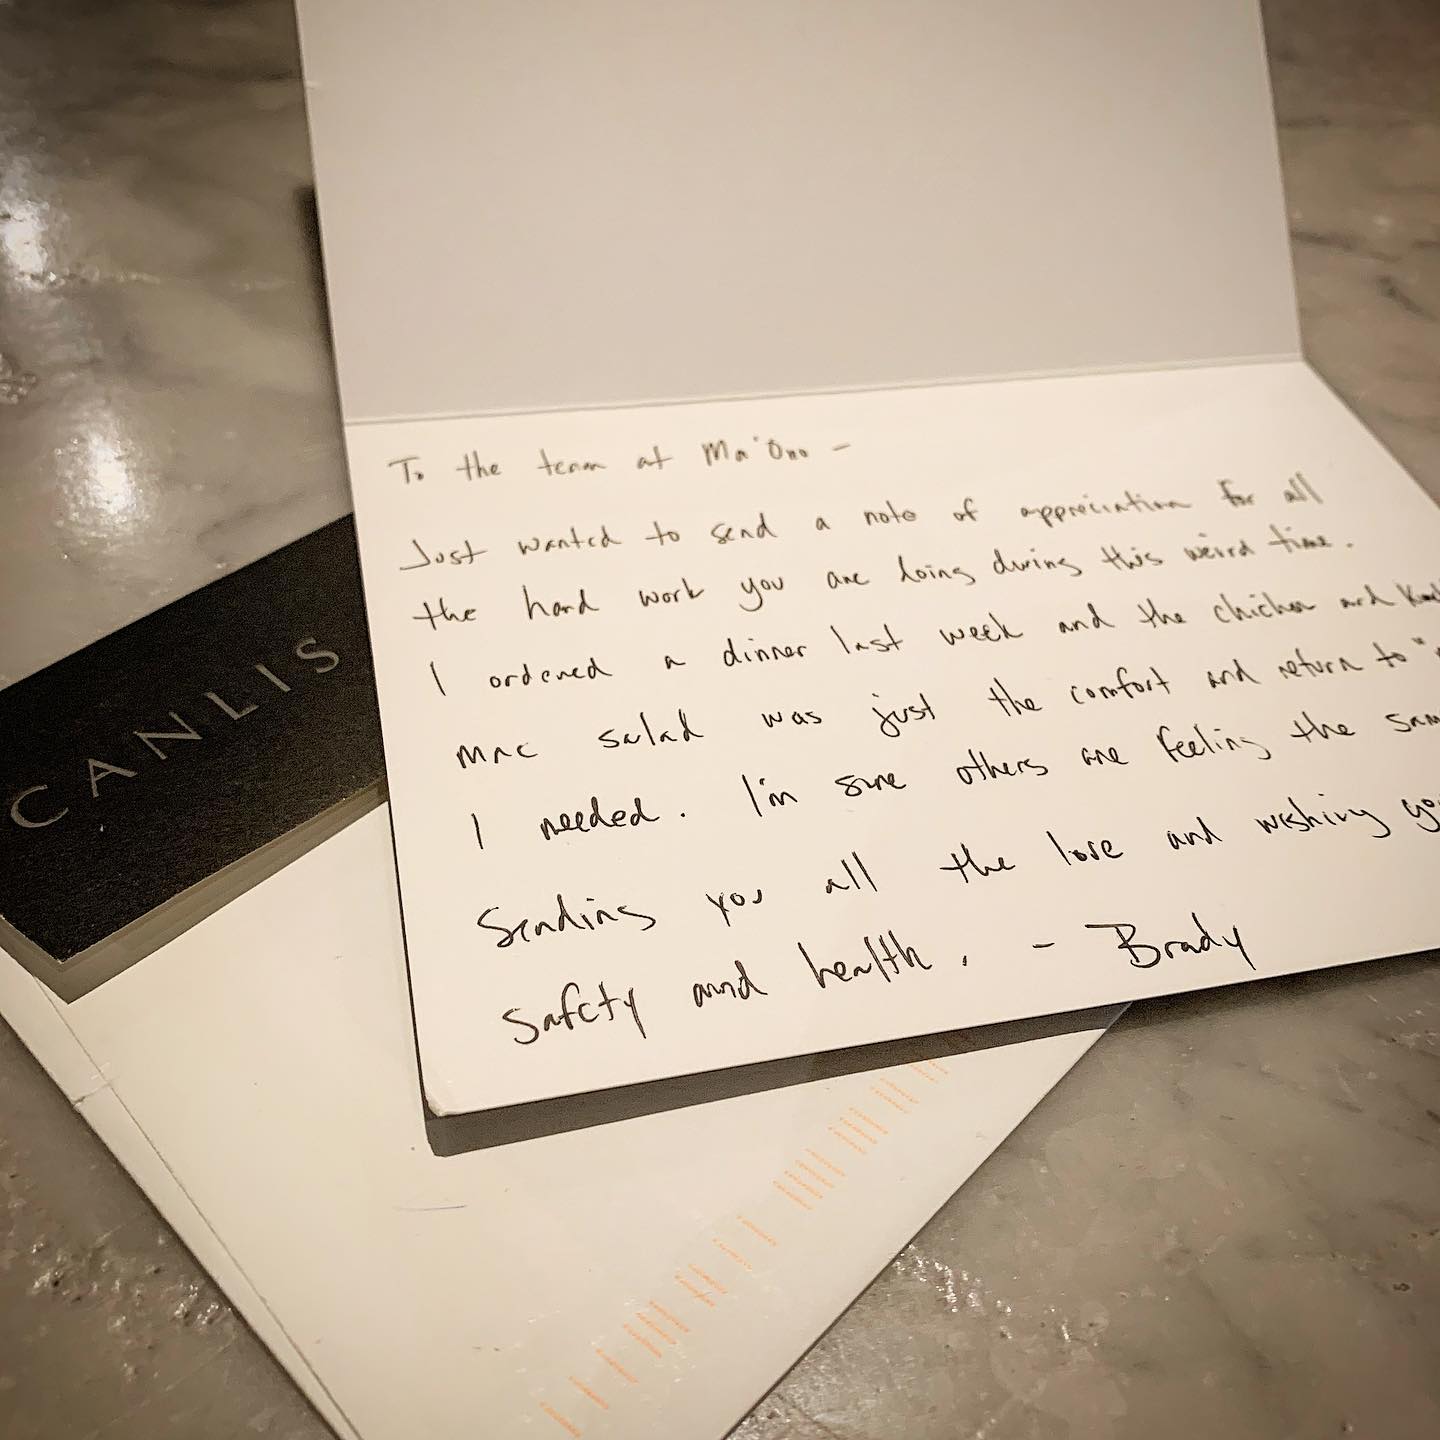 To the team at Ma'Ono -
Just wanted to send a note of appreciation for all
the hard work you are doing during this weird time.
I ordered a dinner last week and the chicken and
mac salad was just the comfort and return to "
I needed. I'm sure others are feeling the
Sending you all the love and wishing
safety and health. - Brady
CANLIS